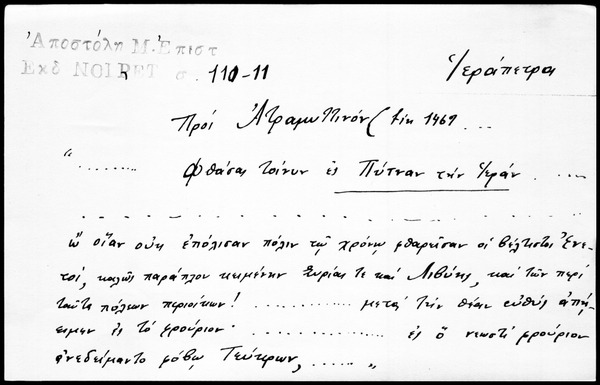 Ἀποστόλη Μ. Ἐπιστ
Εκδ NOIRET σ. 110-11
Ἱεράπετρα
Πρός Ἀτραμυττινόν (ἐτ. 1469 ...
" ........ Φθάσας τοίνυν ἐς Πύτναν τὴν Ἱεράν. ....
ὢ οἵαν οὐκ ἐπόλισαν πόλιν τῷ χρόνῳ φθαρεῖσαν οἱ βέλτιστοι Ἐνε
τοί, καλῶς παράπλου κειμένην Συρίας τε καὶ Λιβύης, καὶ τῶν περί
ταῦτα πόλεων περιοίκων! ........... μετά τὴν θέαν εὐθὺς ἀπῄ
ειμεν ἐς τὸ φρούριον· .............. ἐς ὃ νεωστί φρούριον
ἀνεδείμαντο φόβῳ Τεύκρων, ..... "